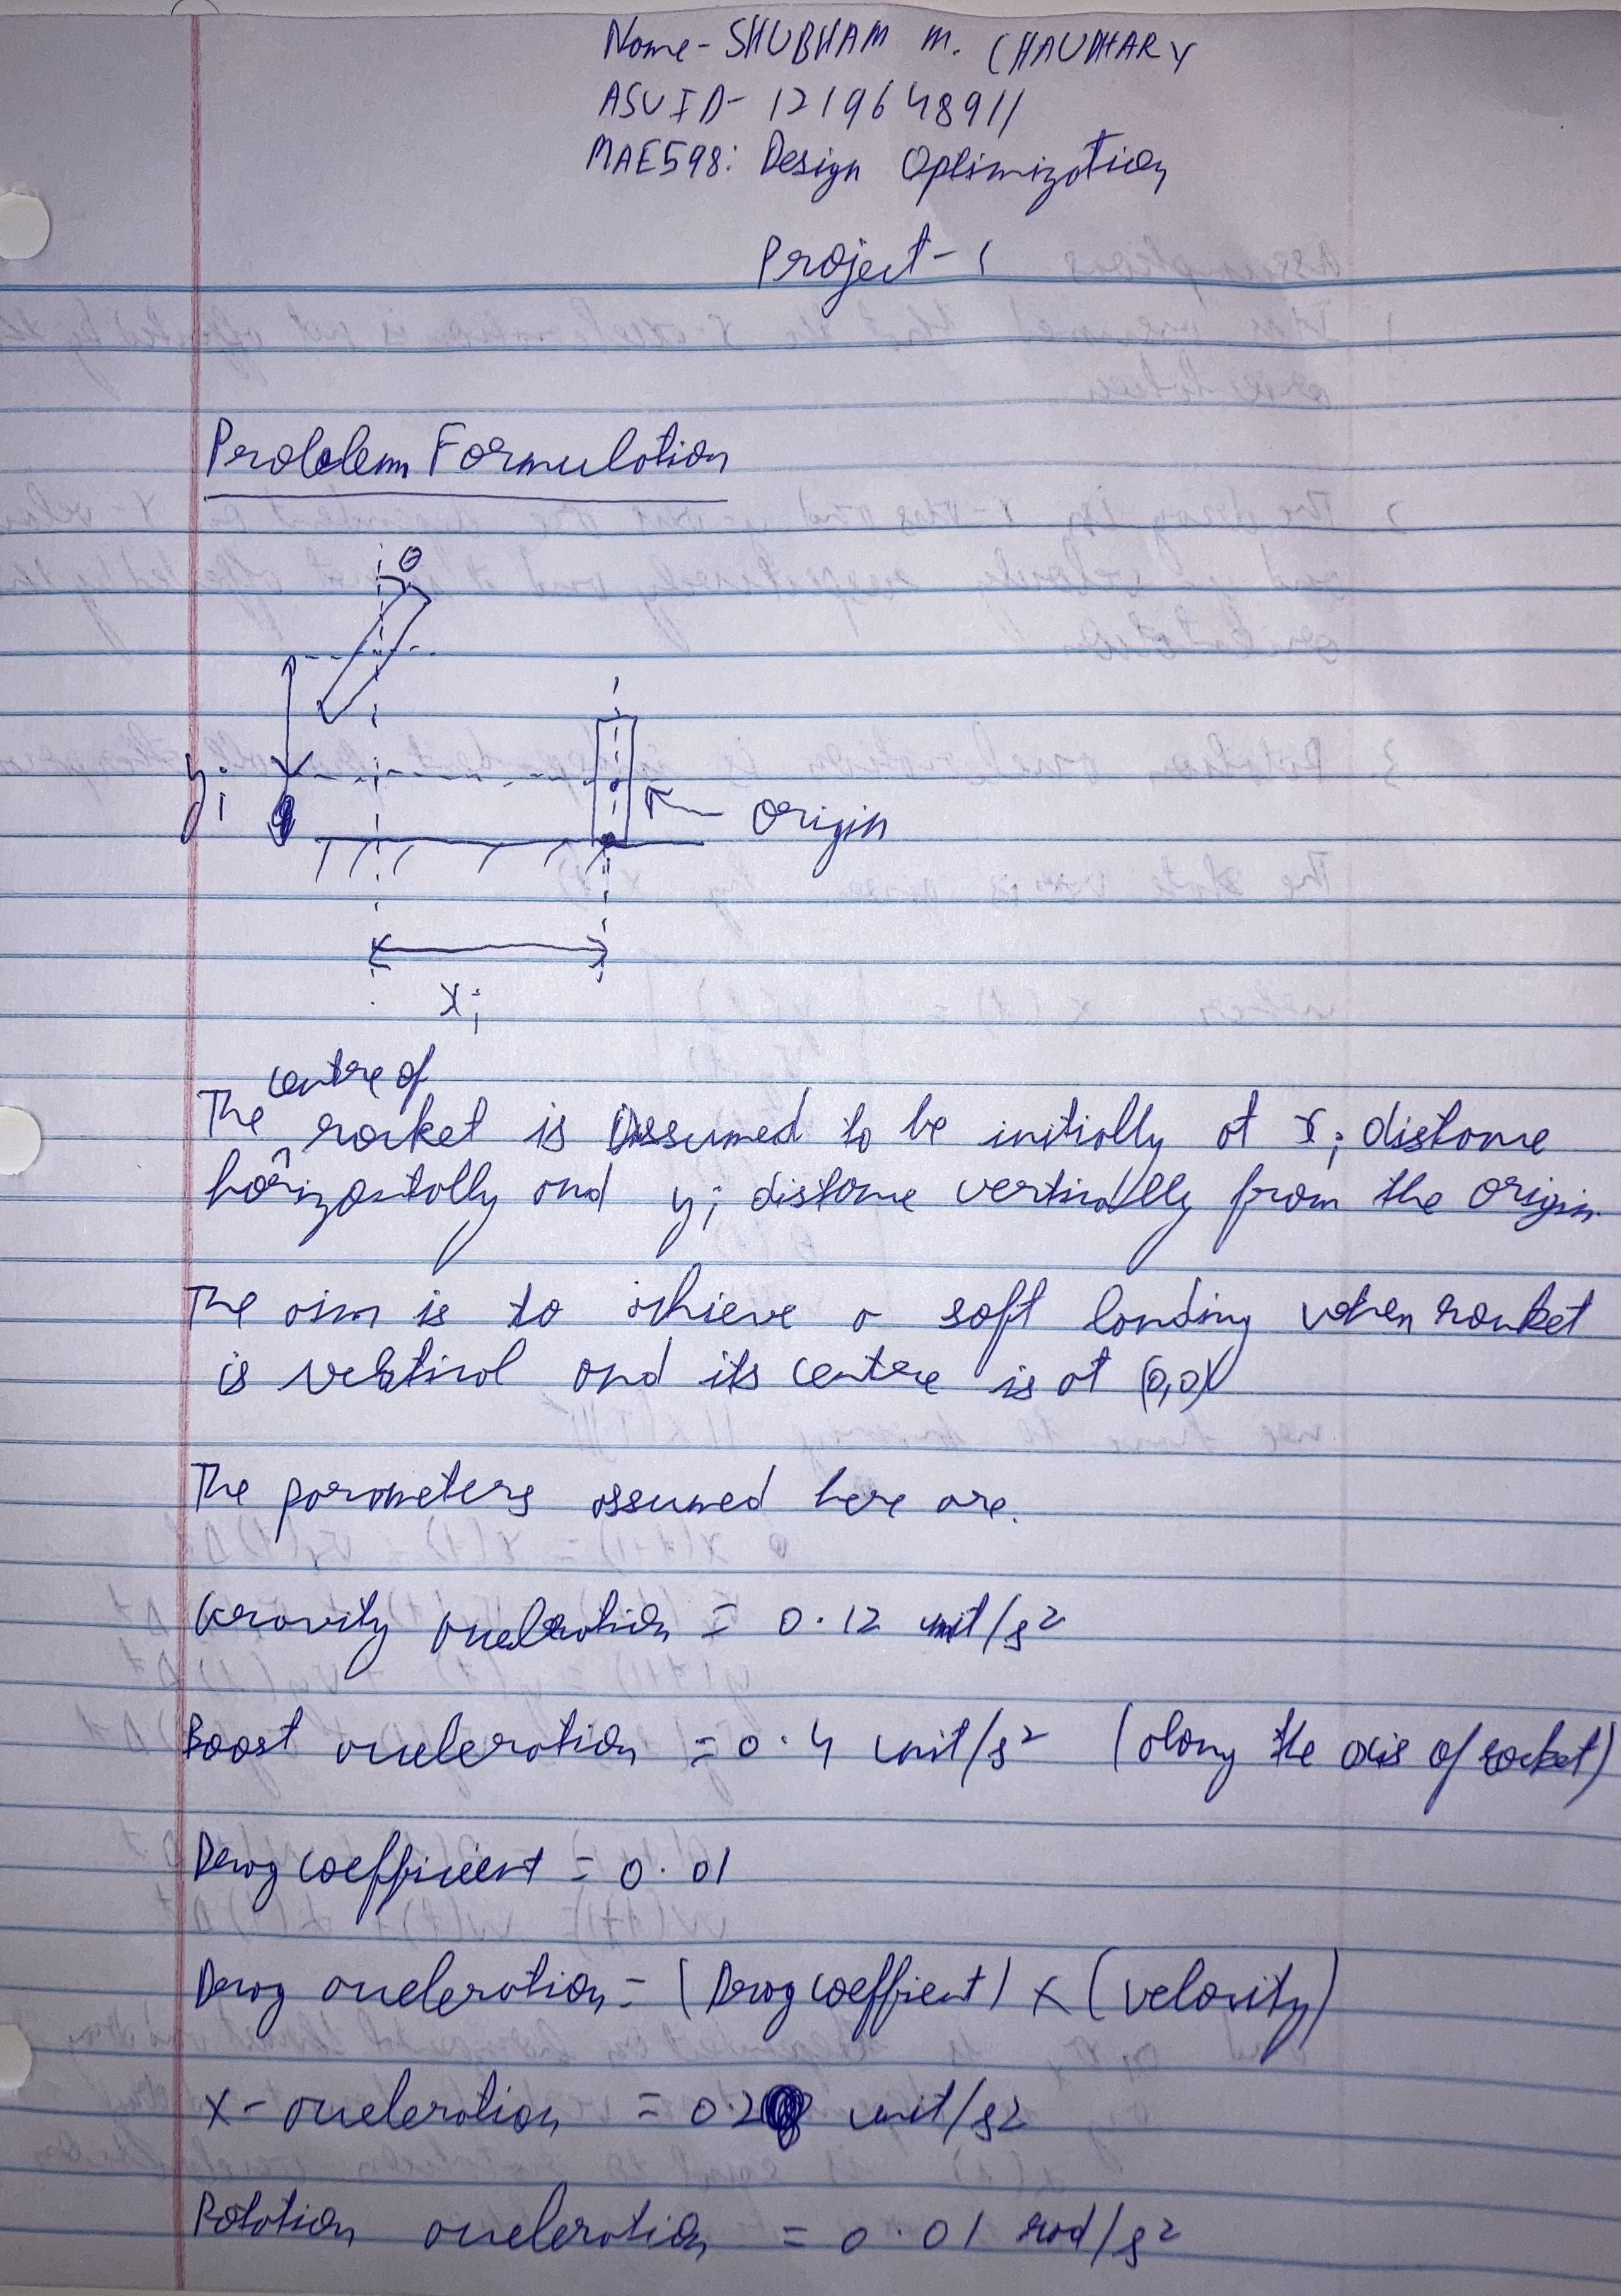 Name- SHUBHAM M. CHAUDHARY
ASU ID- 1219648911
MAE598: Design Optimization
Project-1
Problem Formulation
θ
yi
origin
xi
centre of
The ^ rocket is assumed to be initially at xi distance
horizontally and yi distance vertically from the origin.
The aim is to achieve a soft landing when rocket
is vertical and its centre is at (0,0)
The parameters assumed here are.
Gravity acceleration = 0.12 unit/s²
Boost acceleration = 0.4 unit/s² (along the axis of rocket)
Drag coefficient = 0.01
Drag acceleration = (Drag coeffient) x (velocity)
x-acceleration = 0.2 unit/s2
Rotation acceleration = 0.01 rad/s²